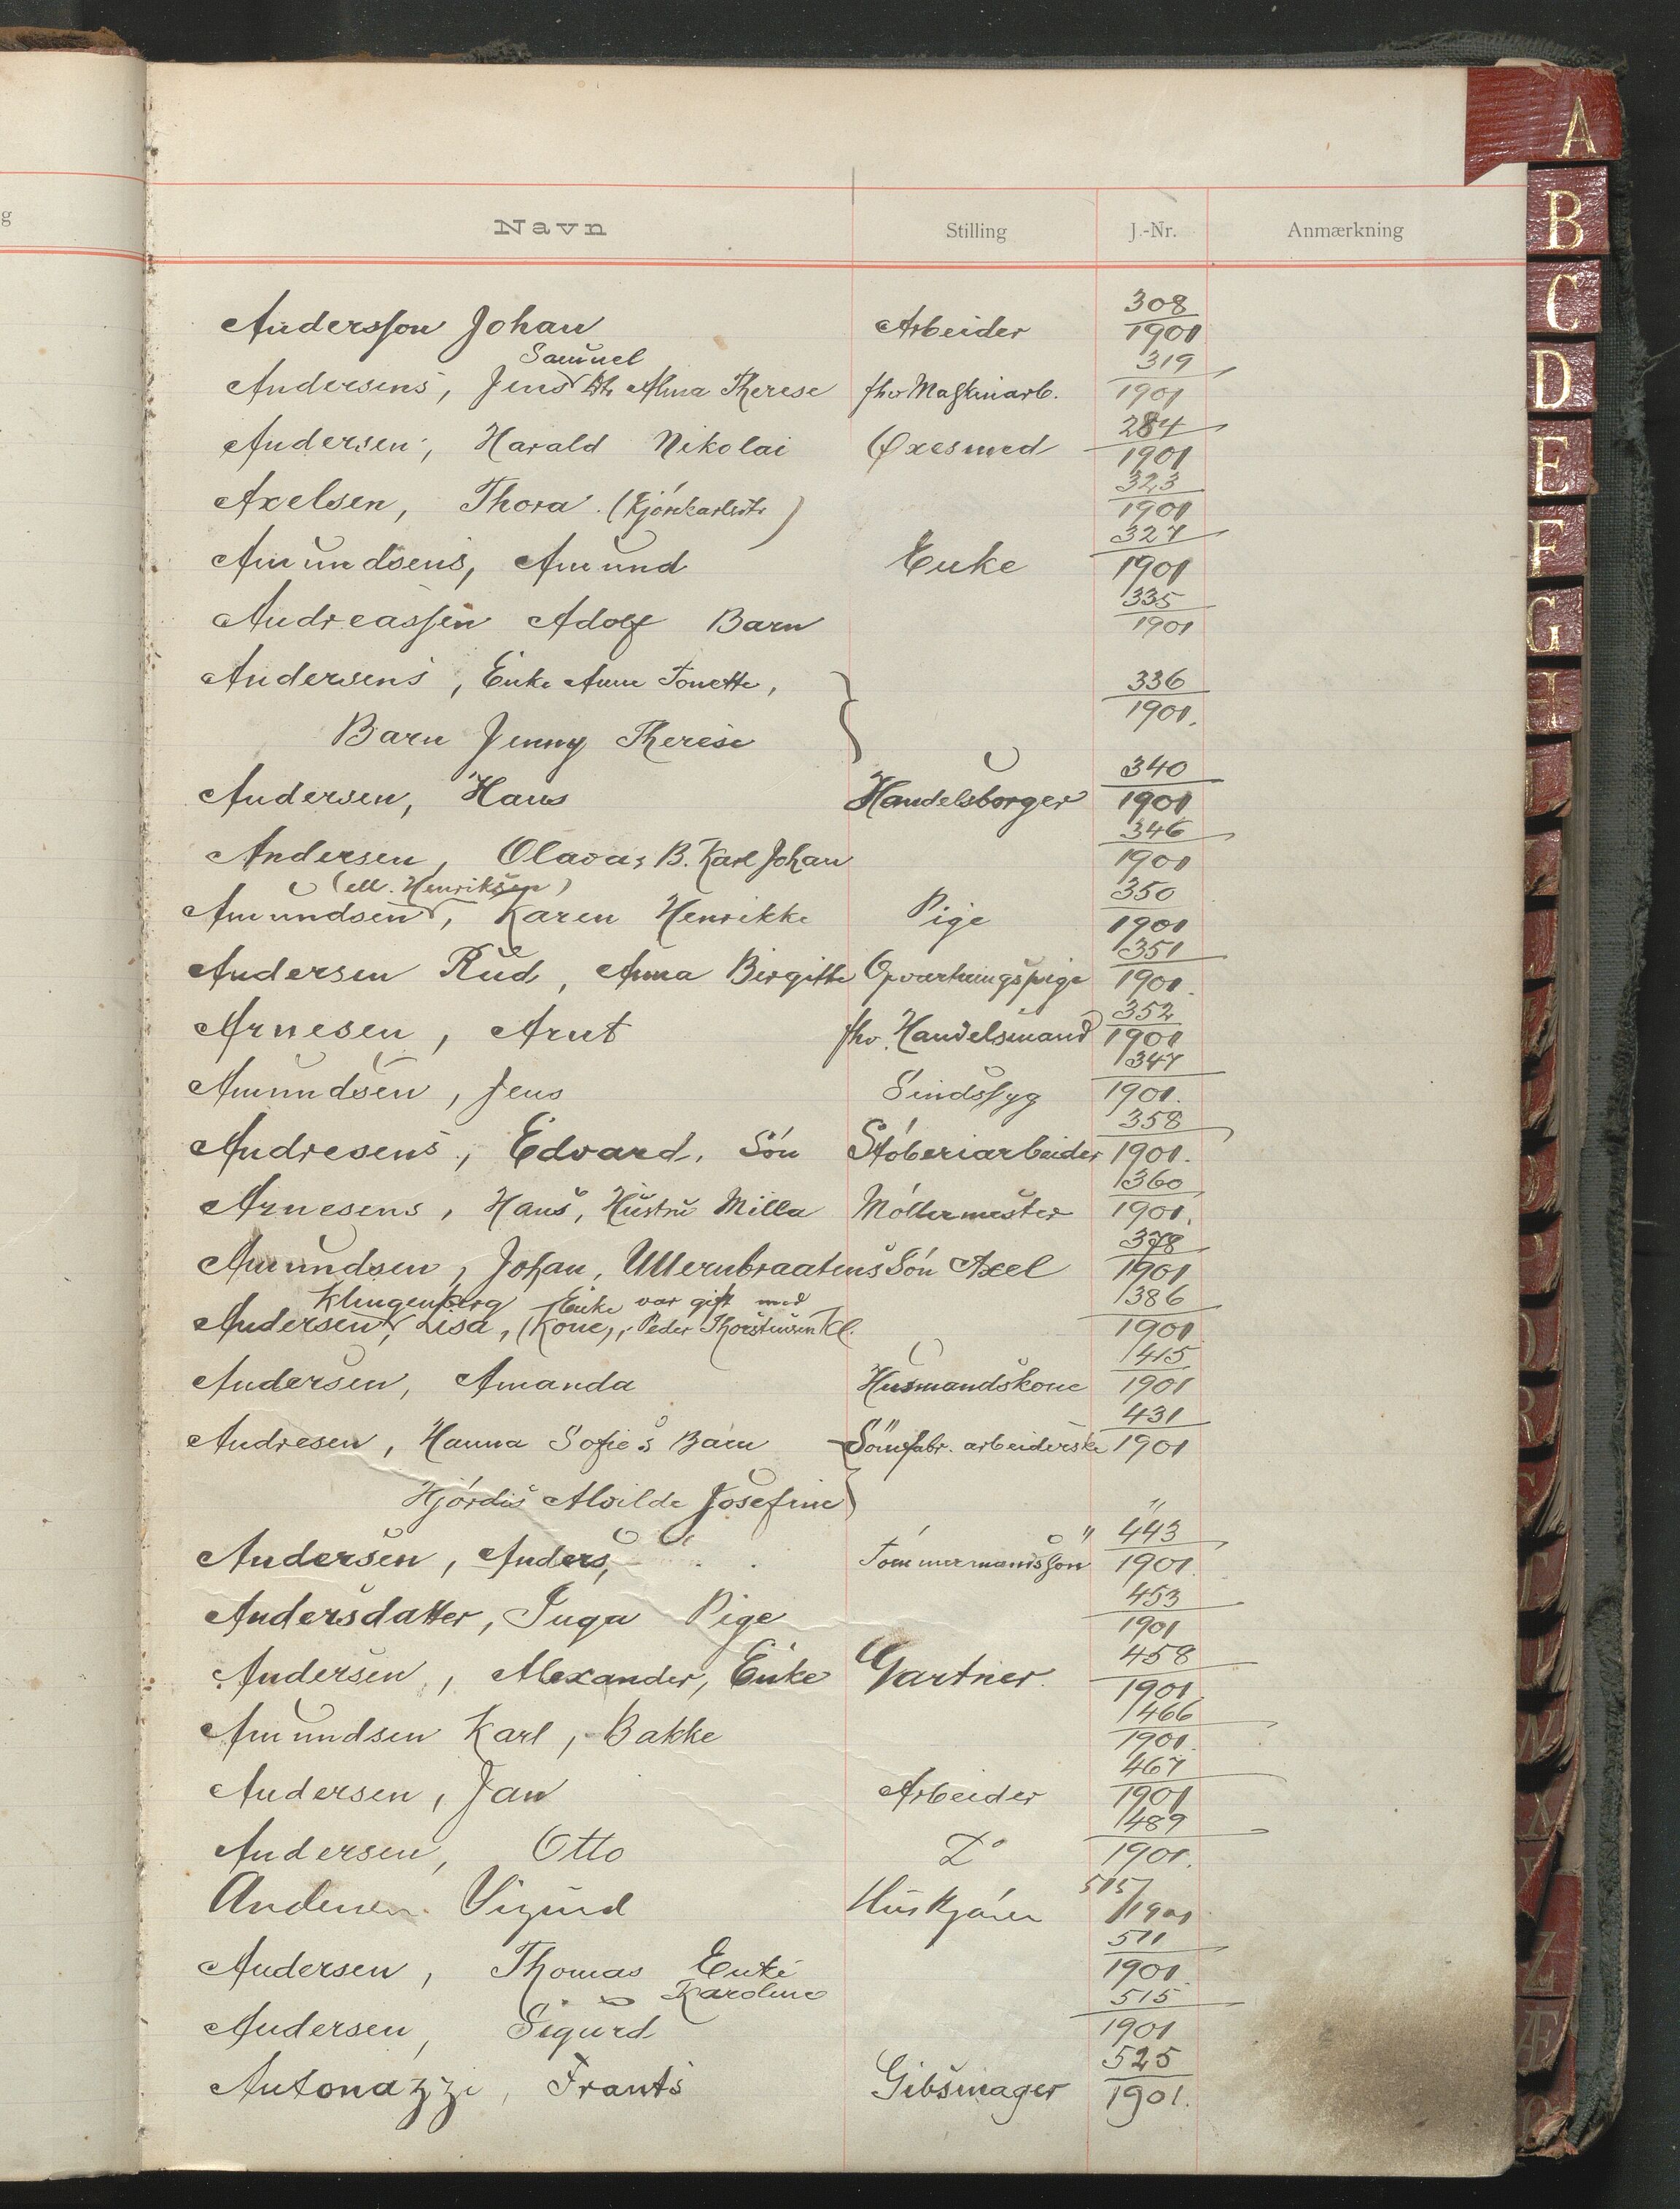 Navn Stilling J.-Nr. Anmærkning
Andersson Johan Arbeider 308/1901
Samuel
Andersens, Jens Dtr Alma Therese fhv Maskinarb. 319/1901
Andersen, Harald Nikolai Øxesmed 284/1901
Axelsen, Thora. (Kjørekarlsdtr) 323/1901
Amundsens, Amund Enke 327/1901
Andreassen Adolf Barn 335/1901
Andersens, Enke Anne Tonette, 336/1901.
Barn Jenny Therese
Andersen, Hans Handelsborger 340/1901
Andersen, Olava's B. Karl Johan 346/1901
(ell. Henriksen)
Amundsen, Karen Henrikke Pige 350/1901
Andersen Rud, Anna Birgitte Opvartningspige 351/1901.
Arnesen, Arnt fhv. Handelsmand 352/1901
Amundsen, Jens Sindssyg 347/1901.
Andresens, Edvard. Søn Støberiarbeider 358/1901.
Arnesens, Hans, Hustru Milla Møllermester 360/1901.
Amundsen, Johan, Ullernbraatens Søn Axel 378/1901
Klingenberg Enke var gift med
Andersen, Lisa, (Kone), Peder Thorstensen Kl. 386/1901
Andersen, Amanda Husmandskone 415/1901
Andresen, Hanna Sofie's Barn Sömfabr. arbeiderske 431/1901
Hjórdis Alvilde Josefine
Andersen, Anders, Tömmermandssön 443/1901.
Andersdatter, Inga Pige 453/1901
Andersen, Alexander, Enke Gartner. 458/1901
Amundsen Karl, Bakke 466/1901.
Andersen, Jan Arbeider 467/1901
Andersen, Otto Do 489/1901.
Andersen Sigurd 515/1901
Andersen, Thomas Enke 511/1901.
Karoline
Andersen, Sigurd 515/1901
Antonazzi, Frants Gibsmager 525/1901.
A
B
C
D
E
F
G
H